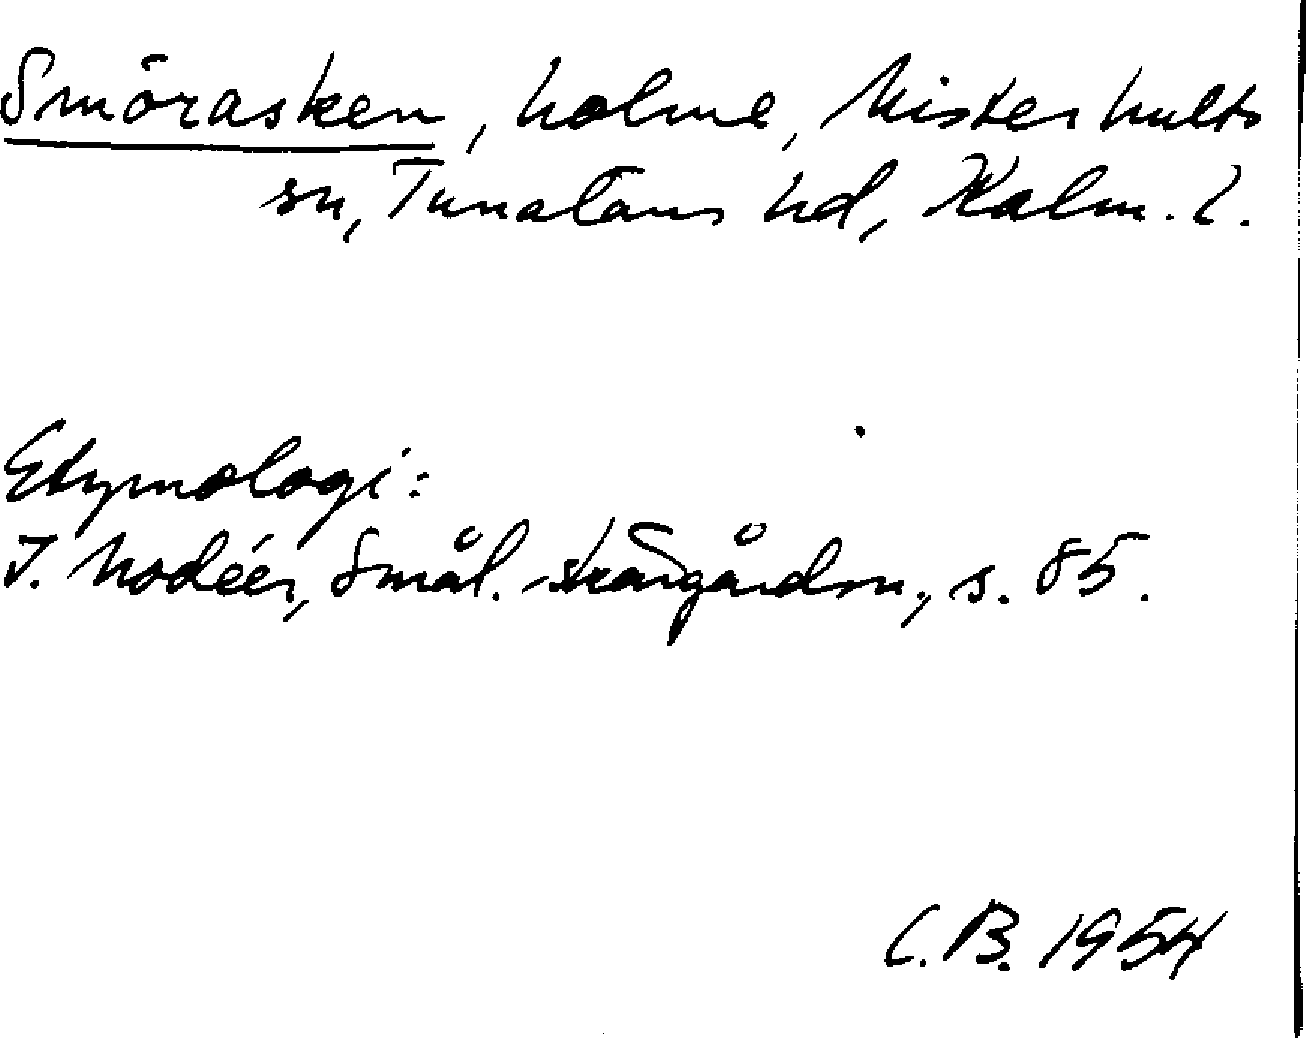 Smörasken, holme, Misterhults
sn, Tunaläns hd, Kalm. l.
Etymologi:
I. Modéer, Smål. skärgårdsn., s. 85.
C. B. 1954